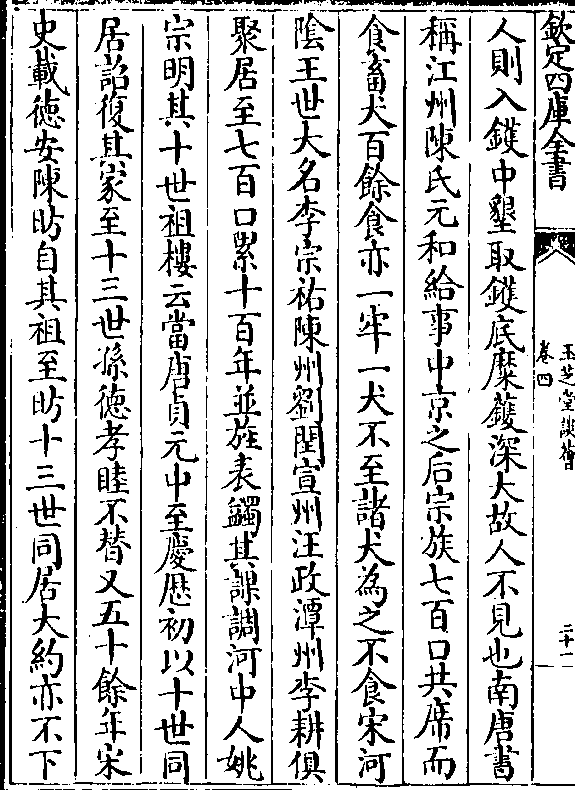 欽定四庫全書
玉芝堂談薈
卷四
二十一
人則入鑊中墾取鑊底糜鑊深大故人不見也南唐書
稱江州陳氏元和給事中京之后宗族七百口共席而
食畜犬百餘食亦一牢一犬不至諸犬為之不食宋河
陰王世大名李宗祐陳州劉閏宣州汪政潭州李耕俱
聚居至七百口累十百年並旌表蠲其課調河中人姚
宗明其十世祖棲云當唐貞元中至慶厯初以十世同
居詔復其家至十三世孫徳孝睦不替又五十餘年宋
史載徳安陳昉自其祖至昉十三世同居大約亦不下